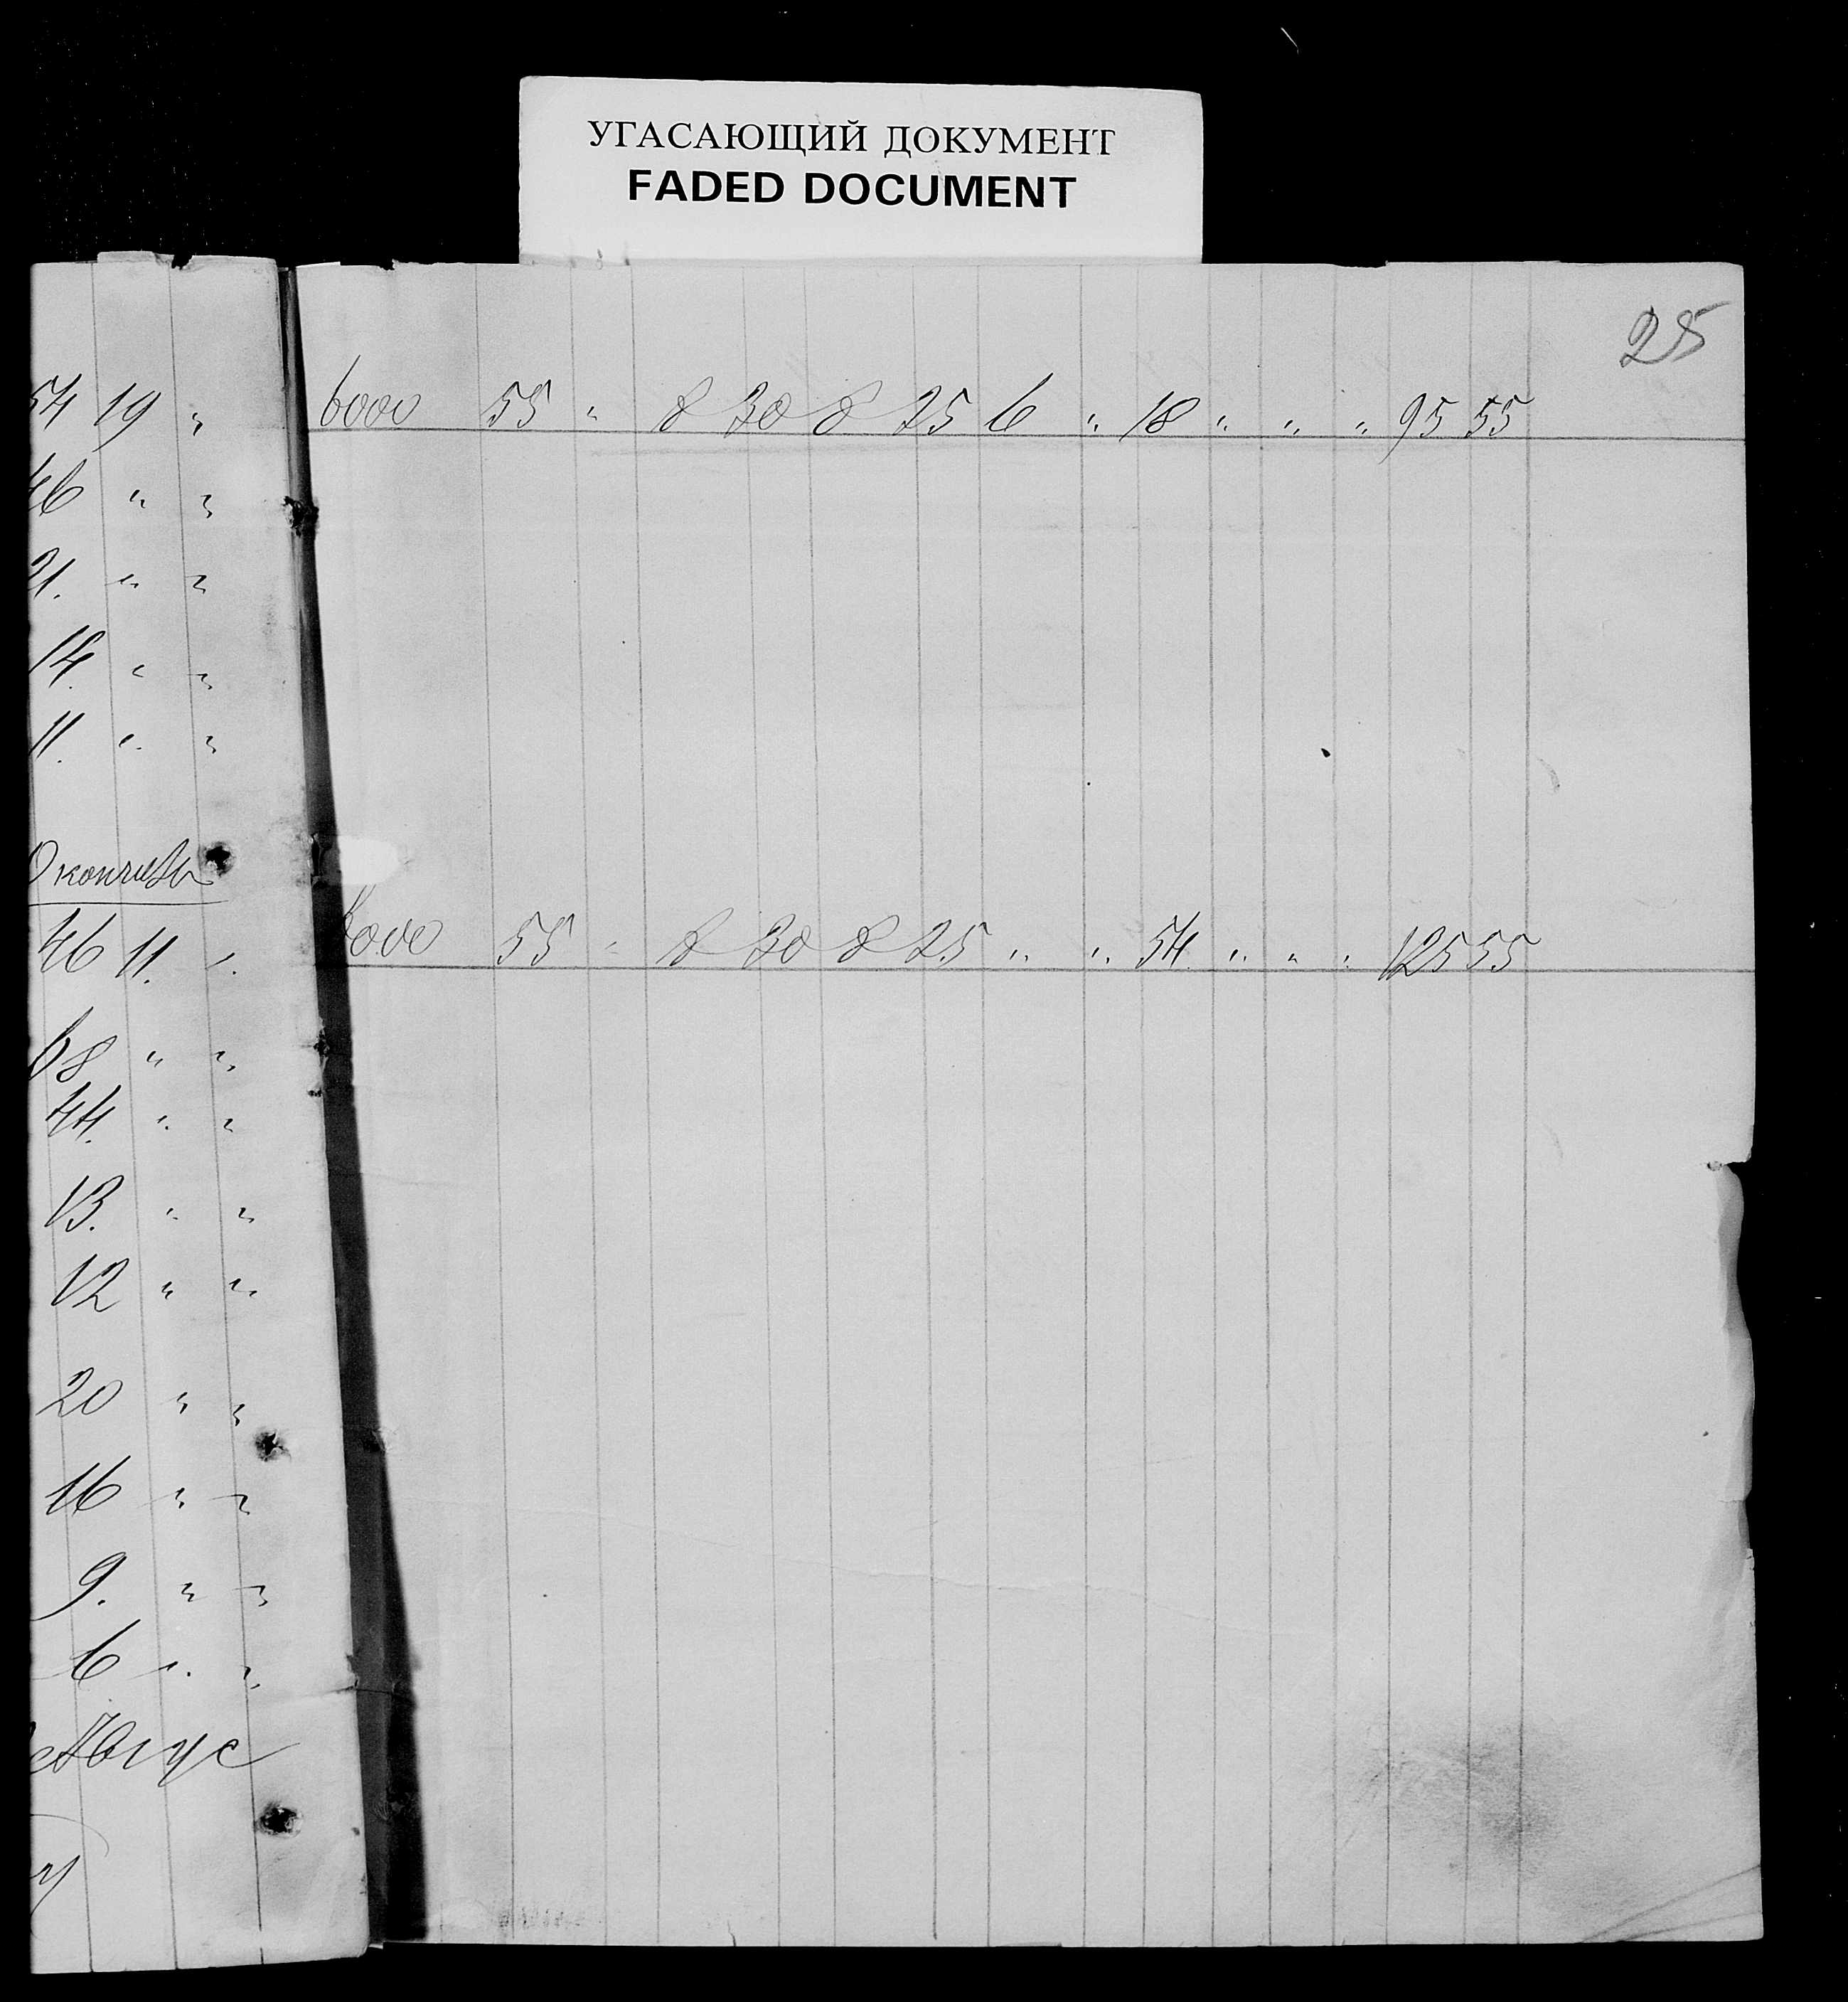 УГАСАЮЩИЙ ДОКУМЕНТ
FADED DOCUMENT
25
54 19 „ 6000 55 „ 8 30 8 25 6 „ 18 „ „ „ 95 55
46 „ „
21. „ „
14. „ „
11. „ „
46 11. „ 6000 55 „ 8 30 8 25 „ „ 54 „ „ „ 125 55
68 „ „
44. „ „
13. „ „
12 „ „
20 „ „
16 „ „
9. „ „
6 „ „